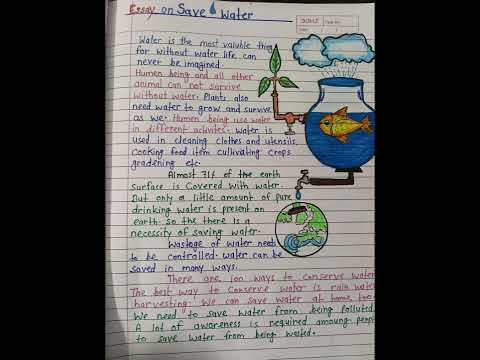 Essay on Save Water
Water is the most valuble thing
for without water life can
never be imagined.
Humen being and all other
animal can not survive
without water. Plants also
need water to grow and survive
as we. Humen being use water
in different activites. Water is
used in cleaning clothes and utensils,
cooking food item cultivating crops
gradening etc.
Almost 71% of the earth
surface is covered with water.
But only a little amount of pure
drinking water is present on
earth. So the there is a
necessity of saving water.
Wastage of water needs
to be controlled. water can be
saved in many ways.
There are 100 ways to conserve water
The best way to conserve water is rain water
harvesting. We can save water at home, too.
We need to save water from being polluted.
A lot of awareness is required amoung people
to save water from being wasted.